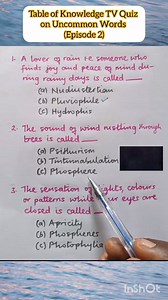 Table of Knowledge TV Quiz
on Uncommon Words
(Episode 2)
1. A lover of rain i.e someone who
finds joy and peace of mind du-
ring rainy days is called
(a) Nudiustertian
(b) Pluviophile ✓
(c) Hydrophis
2. The sound of wind rustling through
trees is called
(a) Psithurism
(b) Tintinnabulation
(c) Phosphene
3. The sensation of lights, colours
or patterns while our eyes are
closed is called
(a) Apricity
(b) Phosphenes
(c) Photophylia
InShOt